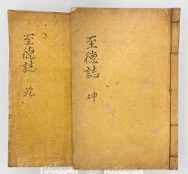 至德誌 乾
至德誌 坤